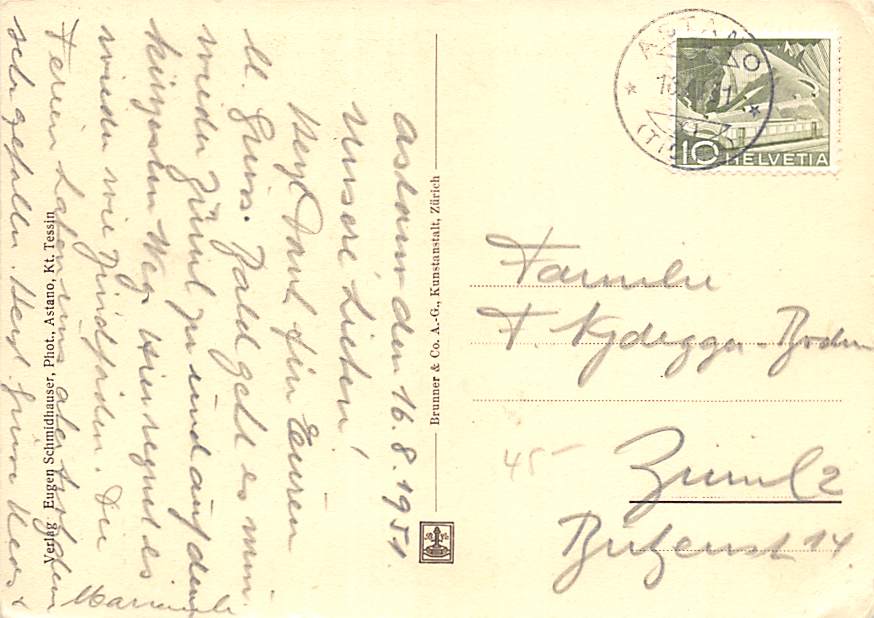 Astano den 16.8.1951.
Unsere Lieben!
Herzl. Dank für Euren
lb. Gruss. Bald geht es nun
wieder Zürich zu und auf dem
kürzesten Weg. Hier regnet es
wieder wie Bindfäden. Die
Ferien haben uns aber trotzdem
sehr gefallen. Herzl. Grüsse
Verlag Eugen Schmidhauser, Phot., Astano, Kt. Tessin
Brunner & Co. A.-G., Kunstanstalt, Zürich
ASTANO
(TI
10 HELVETIA
Familie
F.
Zürich 2
14.
45-